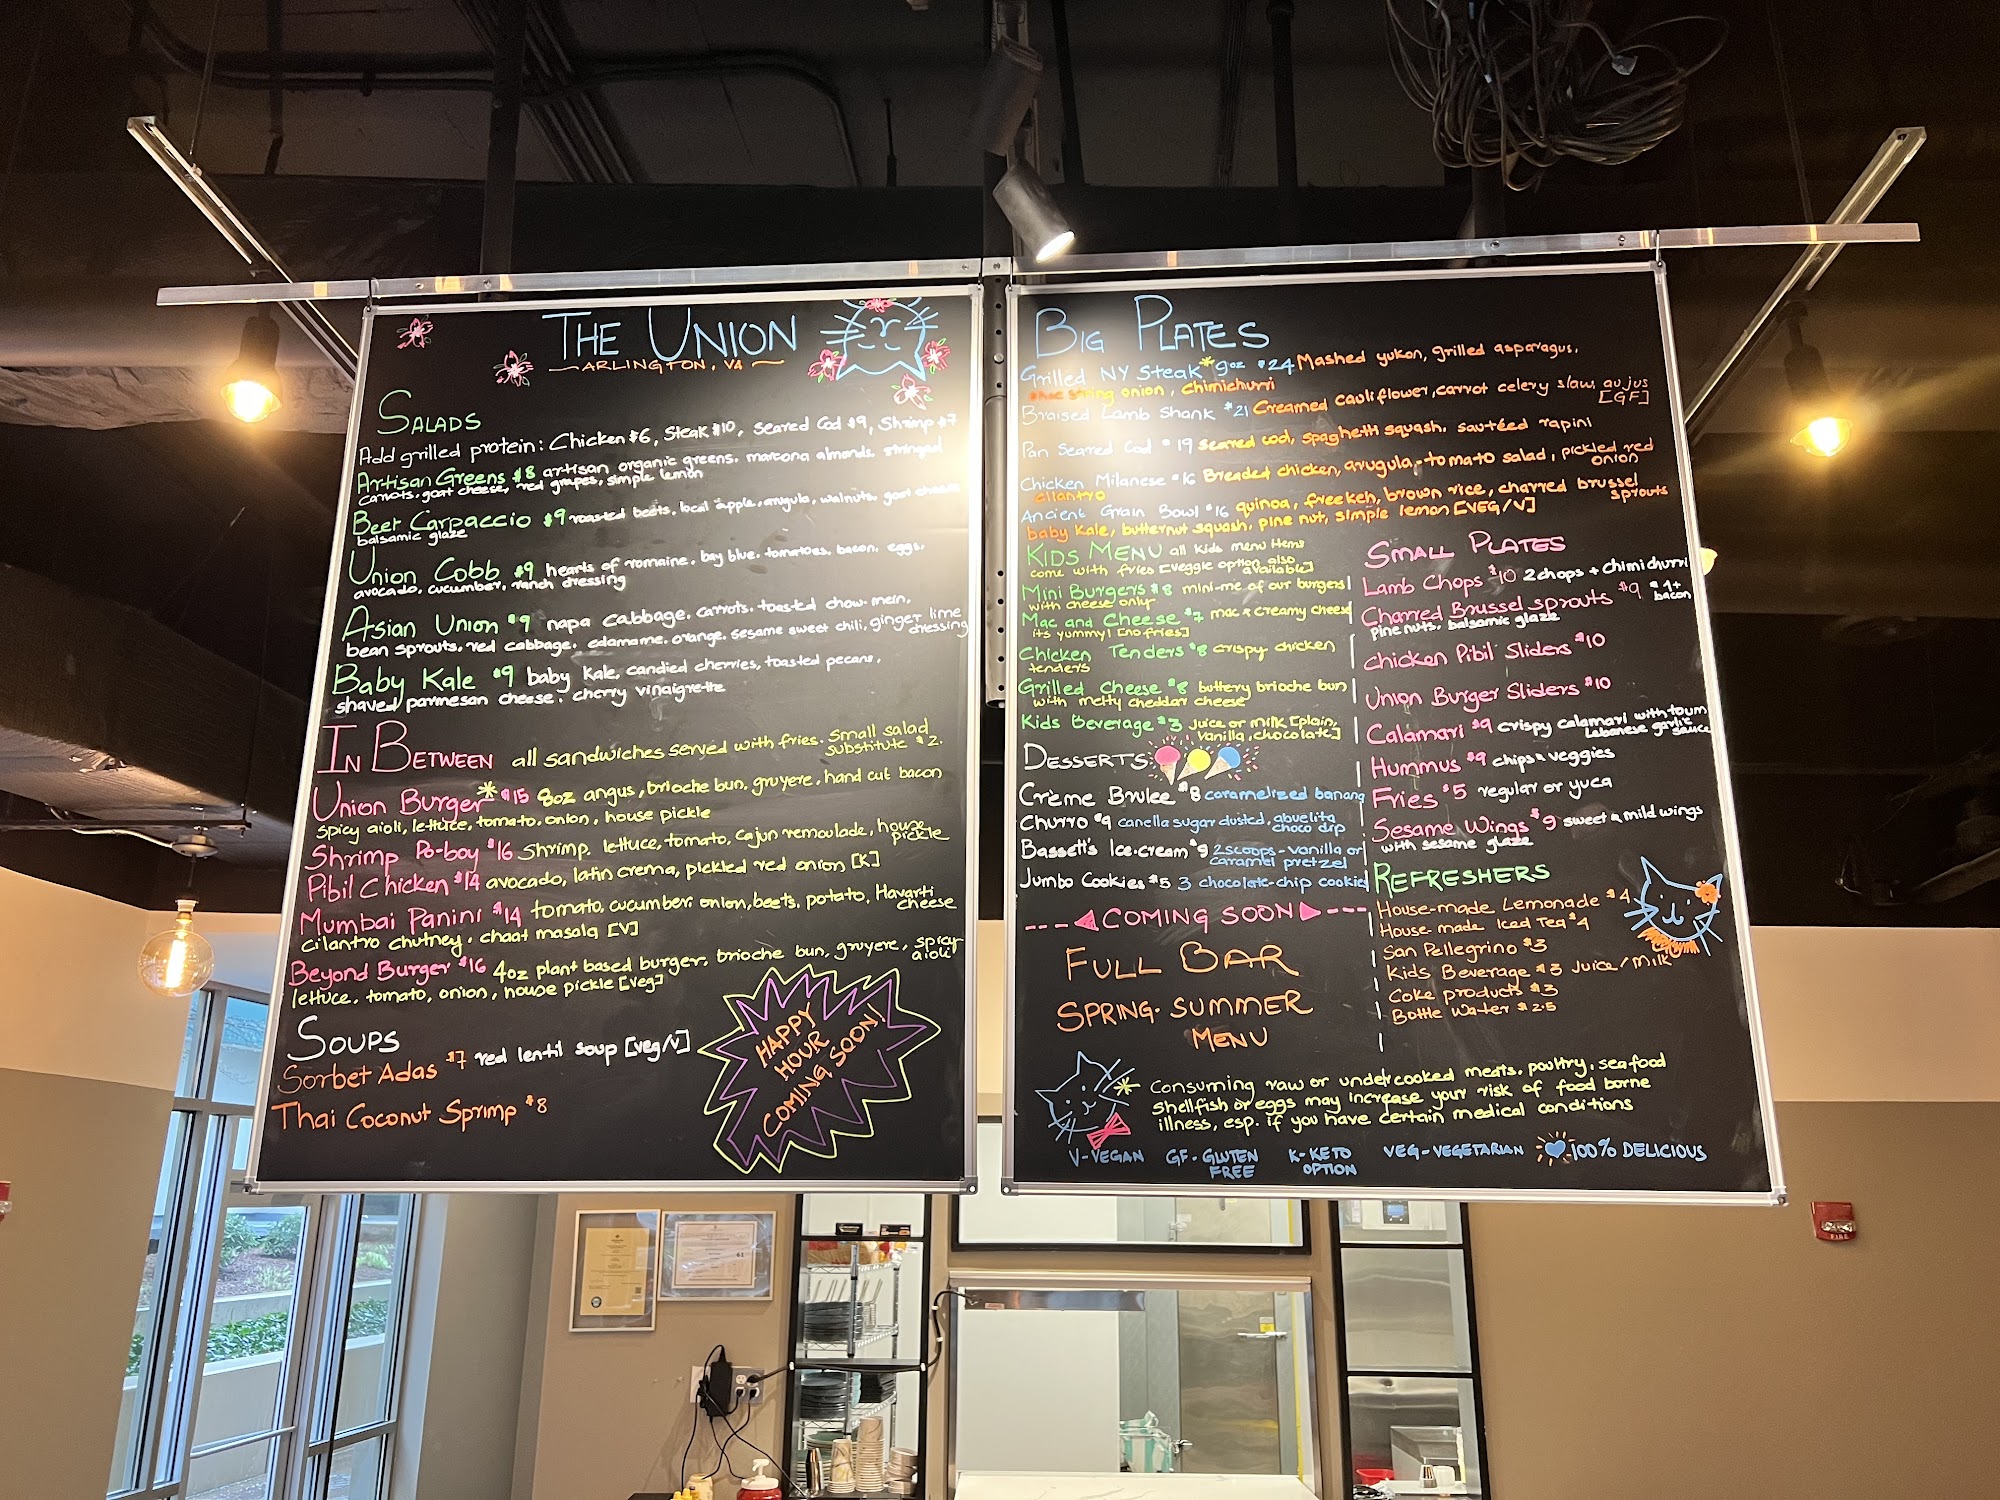 THE UNION
ARLINGTON, VA
SALADS
Add grilled protein: Chicken $6, Steak $10, seared Cod $9, Shrimp $7
Artisan Greens $8 artisan organic greens. marcona almonds. stringed
carrots. goat cheese, red grapes, simple lemon
Beet Carpaccio $9 roasted beets, local apple, arugula, walnuts, goat cheese
balsamic glaze
Union Cobb $9 hearts of romaine. bay blue. tomatoes. bacon. eggs.
avocado, cucumber, ranch dressing
Asian Union $9 napa cabbage. carrots. toasted chow-mein,
bean sprouts. red cabbage. edamame. orange. sesame sweet chili, ginger lime
dressing
Baby Kale $9 baby kale, candied cherries, toasted pecans,
shaved parmesan cheese. cherry vinaigrette
IN BETWEEN all sandwiches served with fries. Small salad
substitute $2.
Union Burger* $15 8oz angus, brioche bun, gruyere, hand cut bacon
spicy aioli, lettuce, tomato. onion, house pickle
Shrimp Po-boy $16 Shrimp, lettuce, tomato, cajun remoulade, house
pickle
Pibil Chicken $14 avocado, latin crema, pickled red onion [K]
Mumbai Panini $14 tomato, cucumber, onion, beets, potato, Havarti
cheese
cilantro chutney. chaat masala [V]
Beyond Burger $16 4oz plant based burger, brioche bun, gruyere, spicy
aioli
lettuce. tomato, onion, house pickle [veg]
SOUPS
Sorbet Adas $7 red lentil soup [veg/v]
Thai Coconut Sprimp $8
HAPPY
HOUR
COMING SOON!
BIG PLATES
Grilled NY Steak* 9oz $24 Mashed yukon, grilled asparagus,
string onion, Chimichurri
Braised Lamb Shank $21 Creamed cauliflower, carrot celery slaw, au jus
[GF]
Pan Seared Cod $19 seared cod, spaghetti squash, sautéed rapini
Chicken Milanese $16 Breaded chicken, arugula, tomato salad, pickled red
onion
cilantro
Ancient Grain Bowl $16 quinoa, freekeh, brown rice, charred brussel
sprouts
baby kale, butternut squash, pine nut, simple lemon [VEG/V]
KIDS MENU all kids menu items
come with fries [veggie option also
available]
Mini Burgers $8 mini-me of our burgers
with cheese only
Mac and Cheese $7 mac & creamy cheese
its yummy! [no fries]
Chicken Tenders $8 crispy chicken
tenders
Grilled Cheese $8 buttery brioche bun
with melty cheddar cheese
Kids Beverage $3 juice or milk [plain,
vanilla, chocolate]
DESSERTS
Crème Brulee $8 caramelized banana
Churro $9 canella sugar dusted, abuelita
choco dip
Bassett's Ice-cream $9 2 scoops - vanilla or
caramel pretzel
Jumbo Cookies $5 3 chocolate-chip cookies
COMING SOON
FULL BAR
SPRING-SUMMER
MENU
SMALL PLATES
Lamb Chops $10 2 chops + chimichurri
Charred Brussel sprouts $9 $1+
bacon
pine nuts. balsamic glaze
Chicken Pibil Sliders $10
Union Burger Sliders $10
Calamari $9 crispy calamari with toum
Labanese garlic
sauce
Hummus $9 chips & veggies
Fries $5 regular or yuca
Sesame Wings $9 sweet & mild wings
with sesame glaze
REFRESHERS
House-made Lemonade $4
House-made Iced Tea $4
San Pellegrino $3
Kids Beverage $3 Juice/Milk
Coke products $3
Bottle Water $2.5
* Consuming raw or undercooked meats, poultry, seafood
shellfish or eggs may increase your risk of food borne
illness, esp. if you have certain medical conditions
V-VEGAN GF-GLUTEN
FREE K-KETO
OPTION VEG-VEGETARIAN 100% DELICIOUS
FIRE